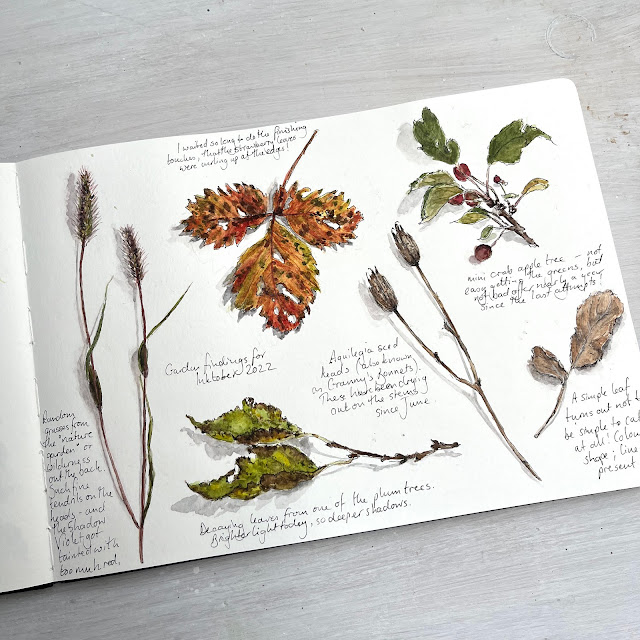 I waited so long to do the finishing
touches, that the strawberry leaves
were curling up at the edges!
mini crab apple tree – not
easy getting the greens, but
not bad after nearly a year
since the last attempts.
Garden findings for
Inktober 2022
Aquilegia seed
heads (also known
as Granny's Bonnets)
These have been drying
out on the stems
since June
A simple leaf
turns out not t
be simple to ca
at all! Colou
shape, line
present
Random
grasses from
the "nature
garden" or
wilderness
out the back.
Such fine
tendrils on the
heads – and
the shadow
violet got
tainted with
too much red.
Decaying leaves from one of the plum trees.
Brighter light today, so deeper shadows.